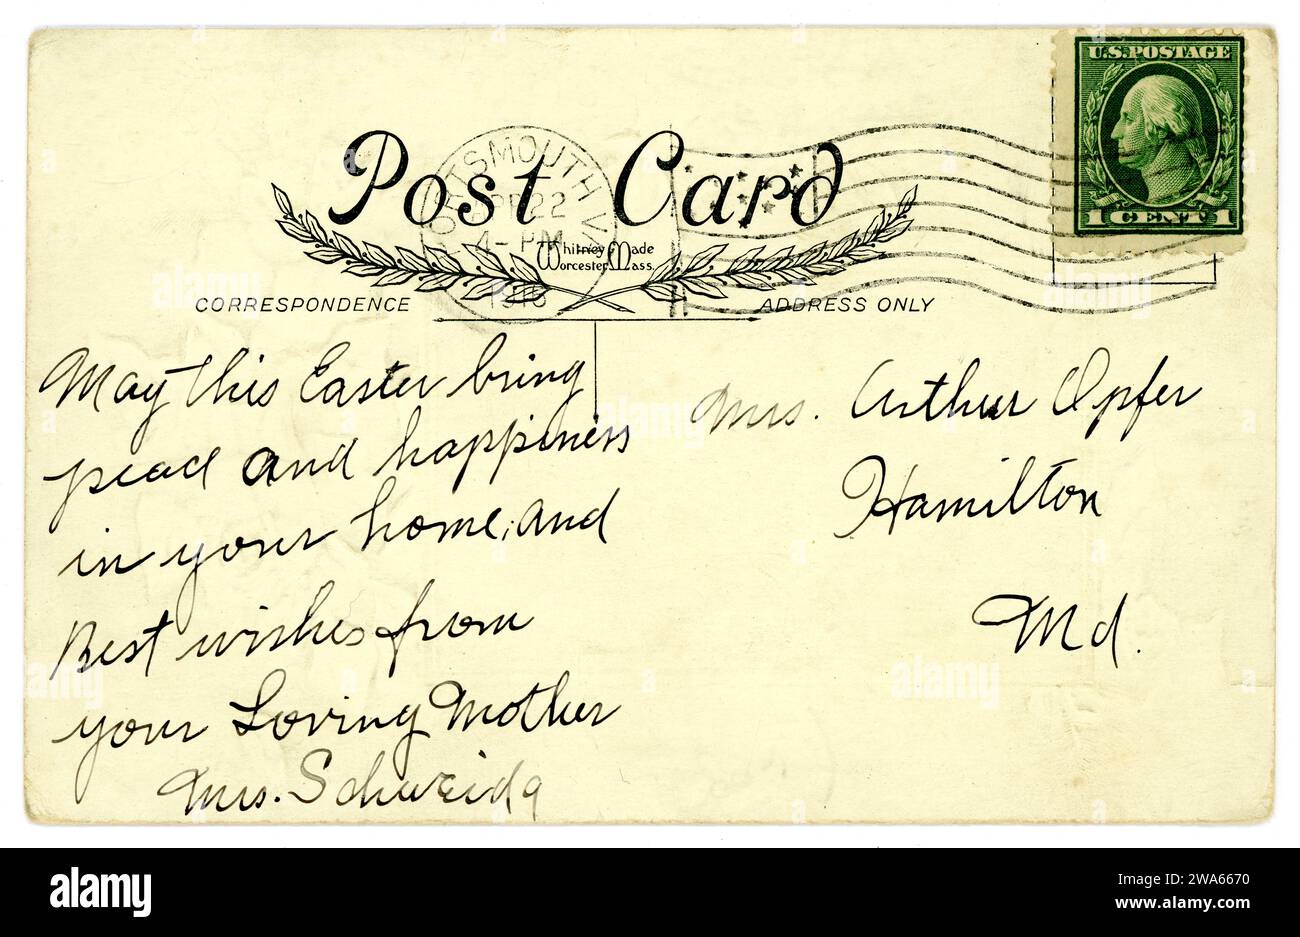 U.S. POSTAGE
1 CENT 1
PORTSMOUTH VA
APR 22
4 - PM
Post Card
Whitney Made
Worcester, Mass.
CORRESPONDENCE
ADDRESS ONLY
May this Easter bring
peace and happiness
in your home, and
Best wishes from
your Loving Mother
Mrs. Schweida
Mrs. Arthur Opfer
Hamilton
Md.
alamy
Image ID: 2WA6670
www.alamy.com